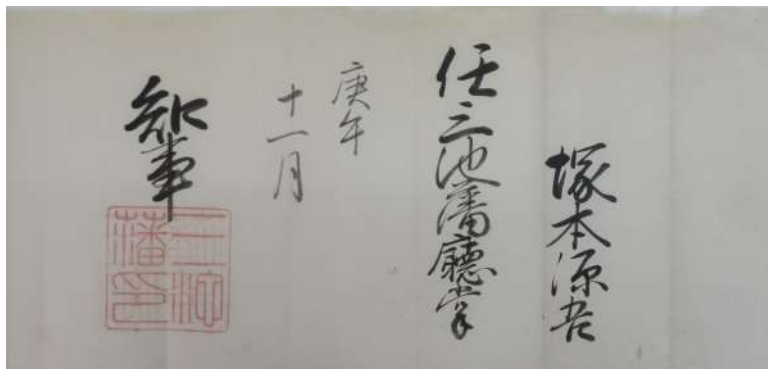 塚本源吾
任三池藩廳掌
庚午
十一月
知事
三池藩印